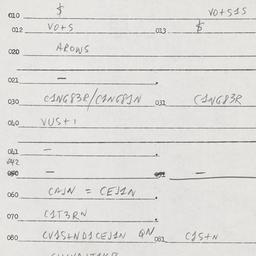 010 $ VO+S1S
012 VO+S 013 $
020 AROWS
021 —
030 C1NG83R/C1NG81N 031 C1NG83R
040 VUS+1
041 —
042
050 — 051 —
060 CAJN = CEJ1N
070 C1T3RN
080 CV1S+ND1CEJ1N QN 081 C1S+N